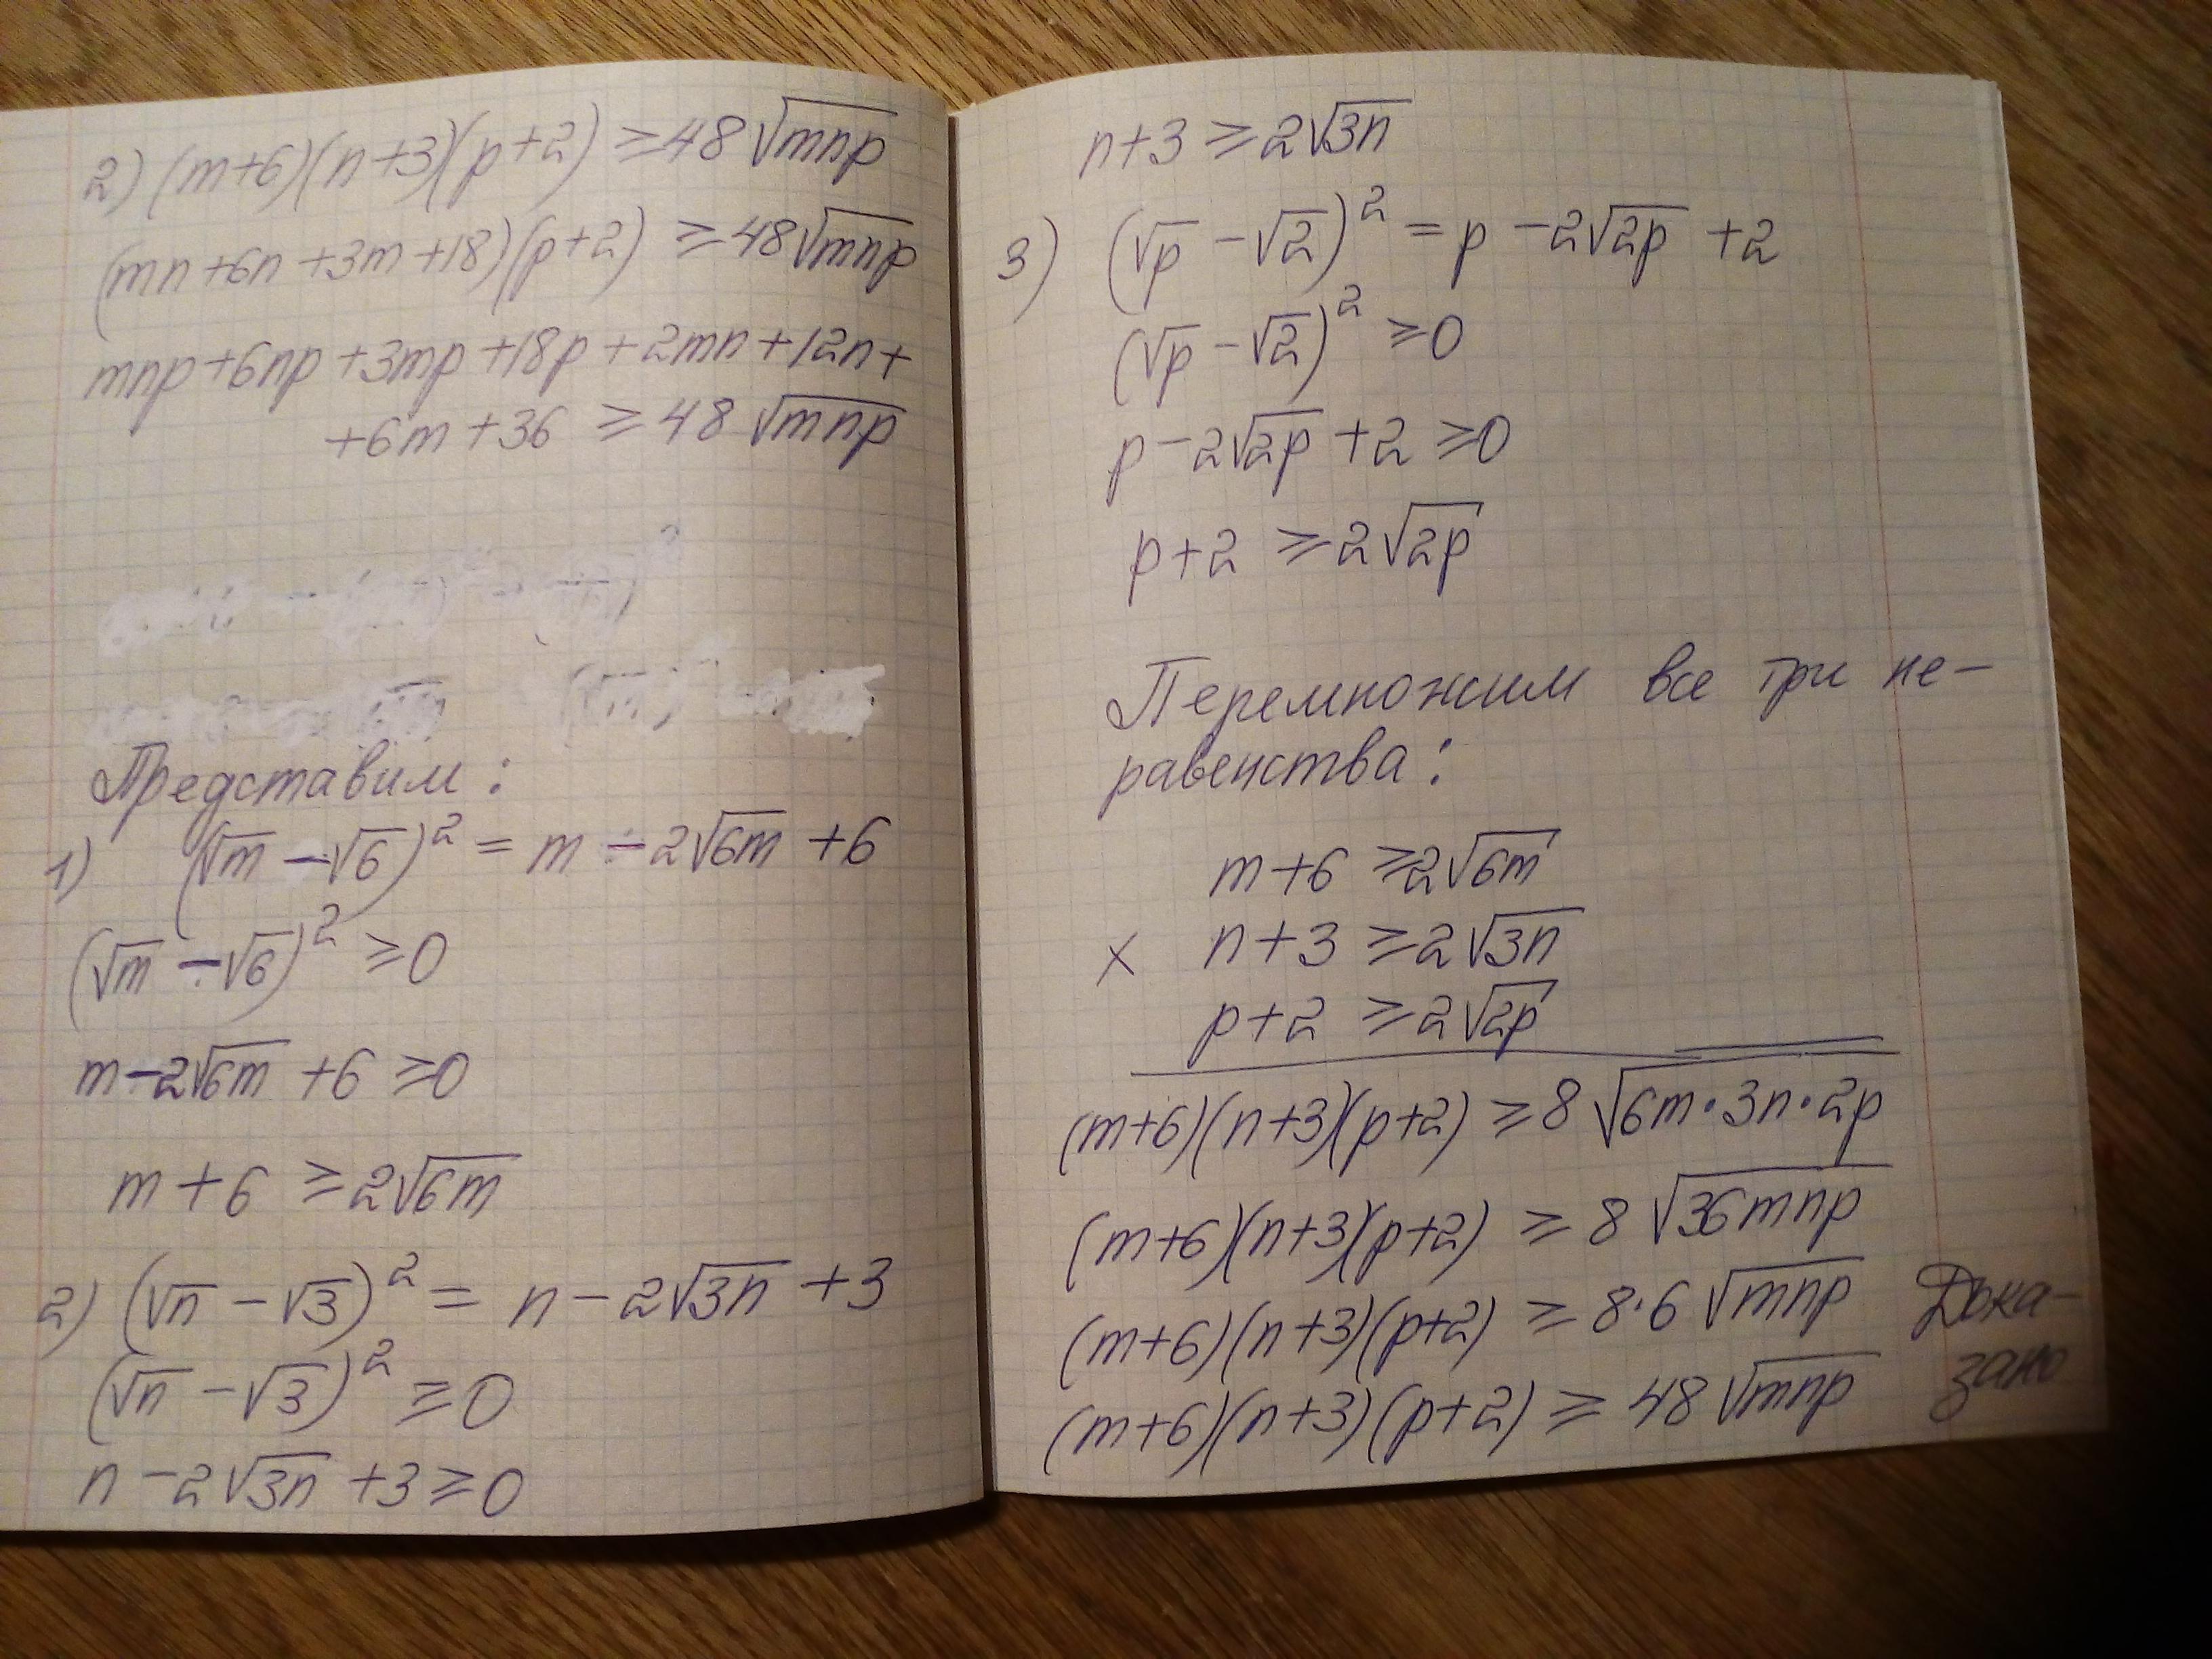 2) (m+6)(n+3)(p+2) ≥ 48√mnp
(mn+6n+3m+18)(p+2) ≥ 48√mnp
mnp+6np+3mp+18p+2mn+12n+
+6m+36 ≥ 48√mnp
Представим:
1) (√m − √6)² = m − 2√6m + 6
(√m − √6)² ≥ 0
m − 2√6m + 6 ≥ 0
m + 6 ≥ 2√6m
2) (√n − √3)² = n − 2√3n + 3
(√n − √3)² ≥ 0
n − 2√3n + 3 ≥ 0
n+3 ≥ 2√3n
3) (√p − √2)² = p − 2√2p + 2
(√p − √2)² ≥ 0
p − 2√2p + 2 ≥ 0
p+2 ≥ 2√2p
Перемножим все три не-
равенства:
m+6 ≥ 2√6m
× n+3 ≥ 2√3n
p+2 ≥ 2√2p
(m+6)(n+3)(p+2) ≥ 8√6m·3n·2p
(m+6)(n+3)(p+2) ≥ 8√36mnp
(m+6)(n+3)(p+2) ≥ 8·6√mnp Дока-
(m+6)(n+3)(p+2) ≥ 48√mnp зано